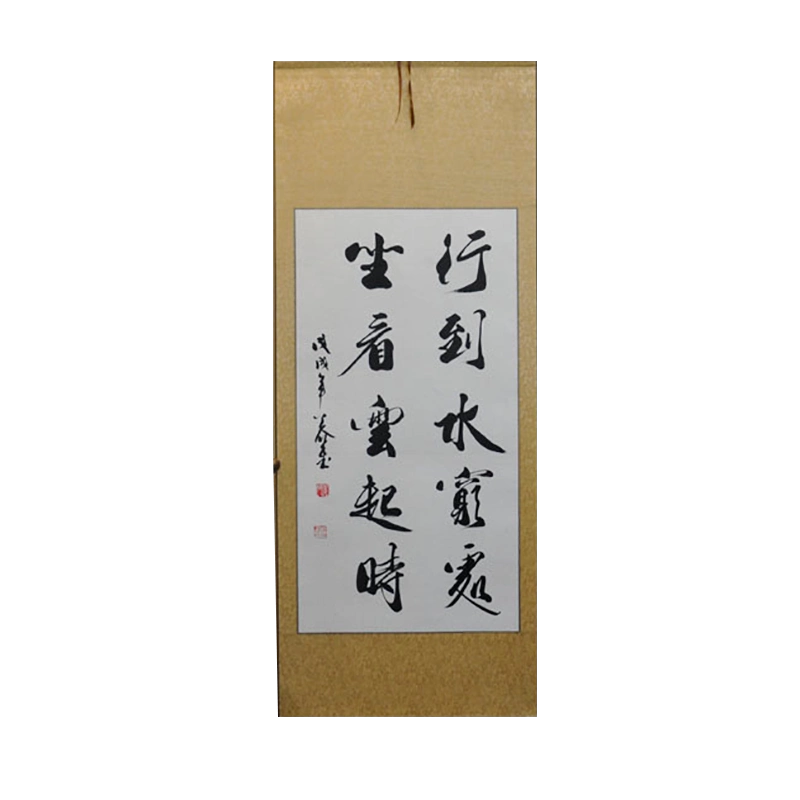 行到水窮處
坐看雲起時
戊戌年